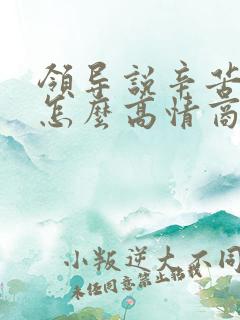 領导說辛苦
怎麼高情商
小叛逆大不同
未经同意禁止转载